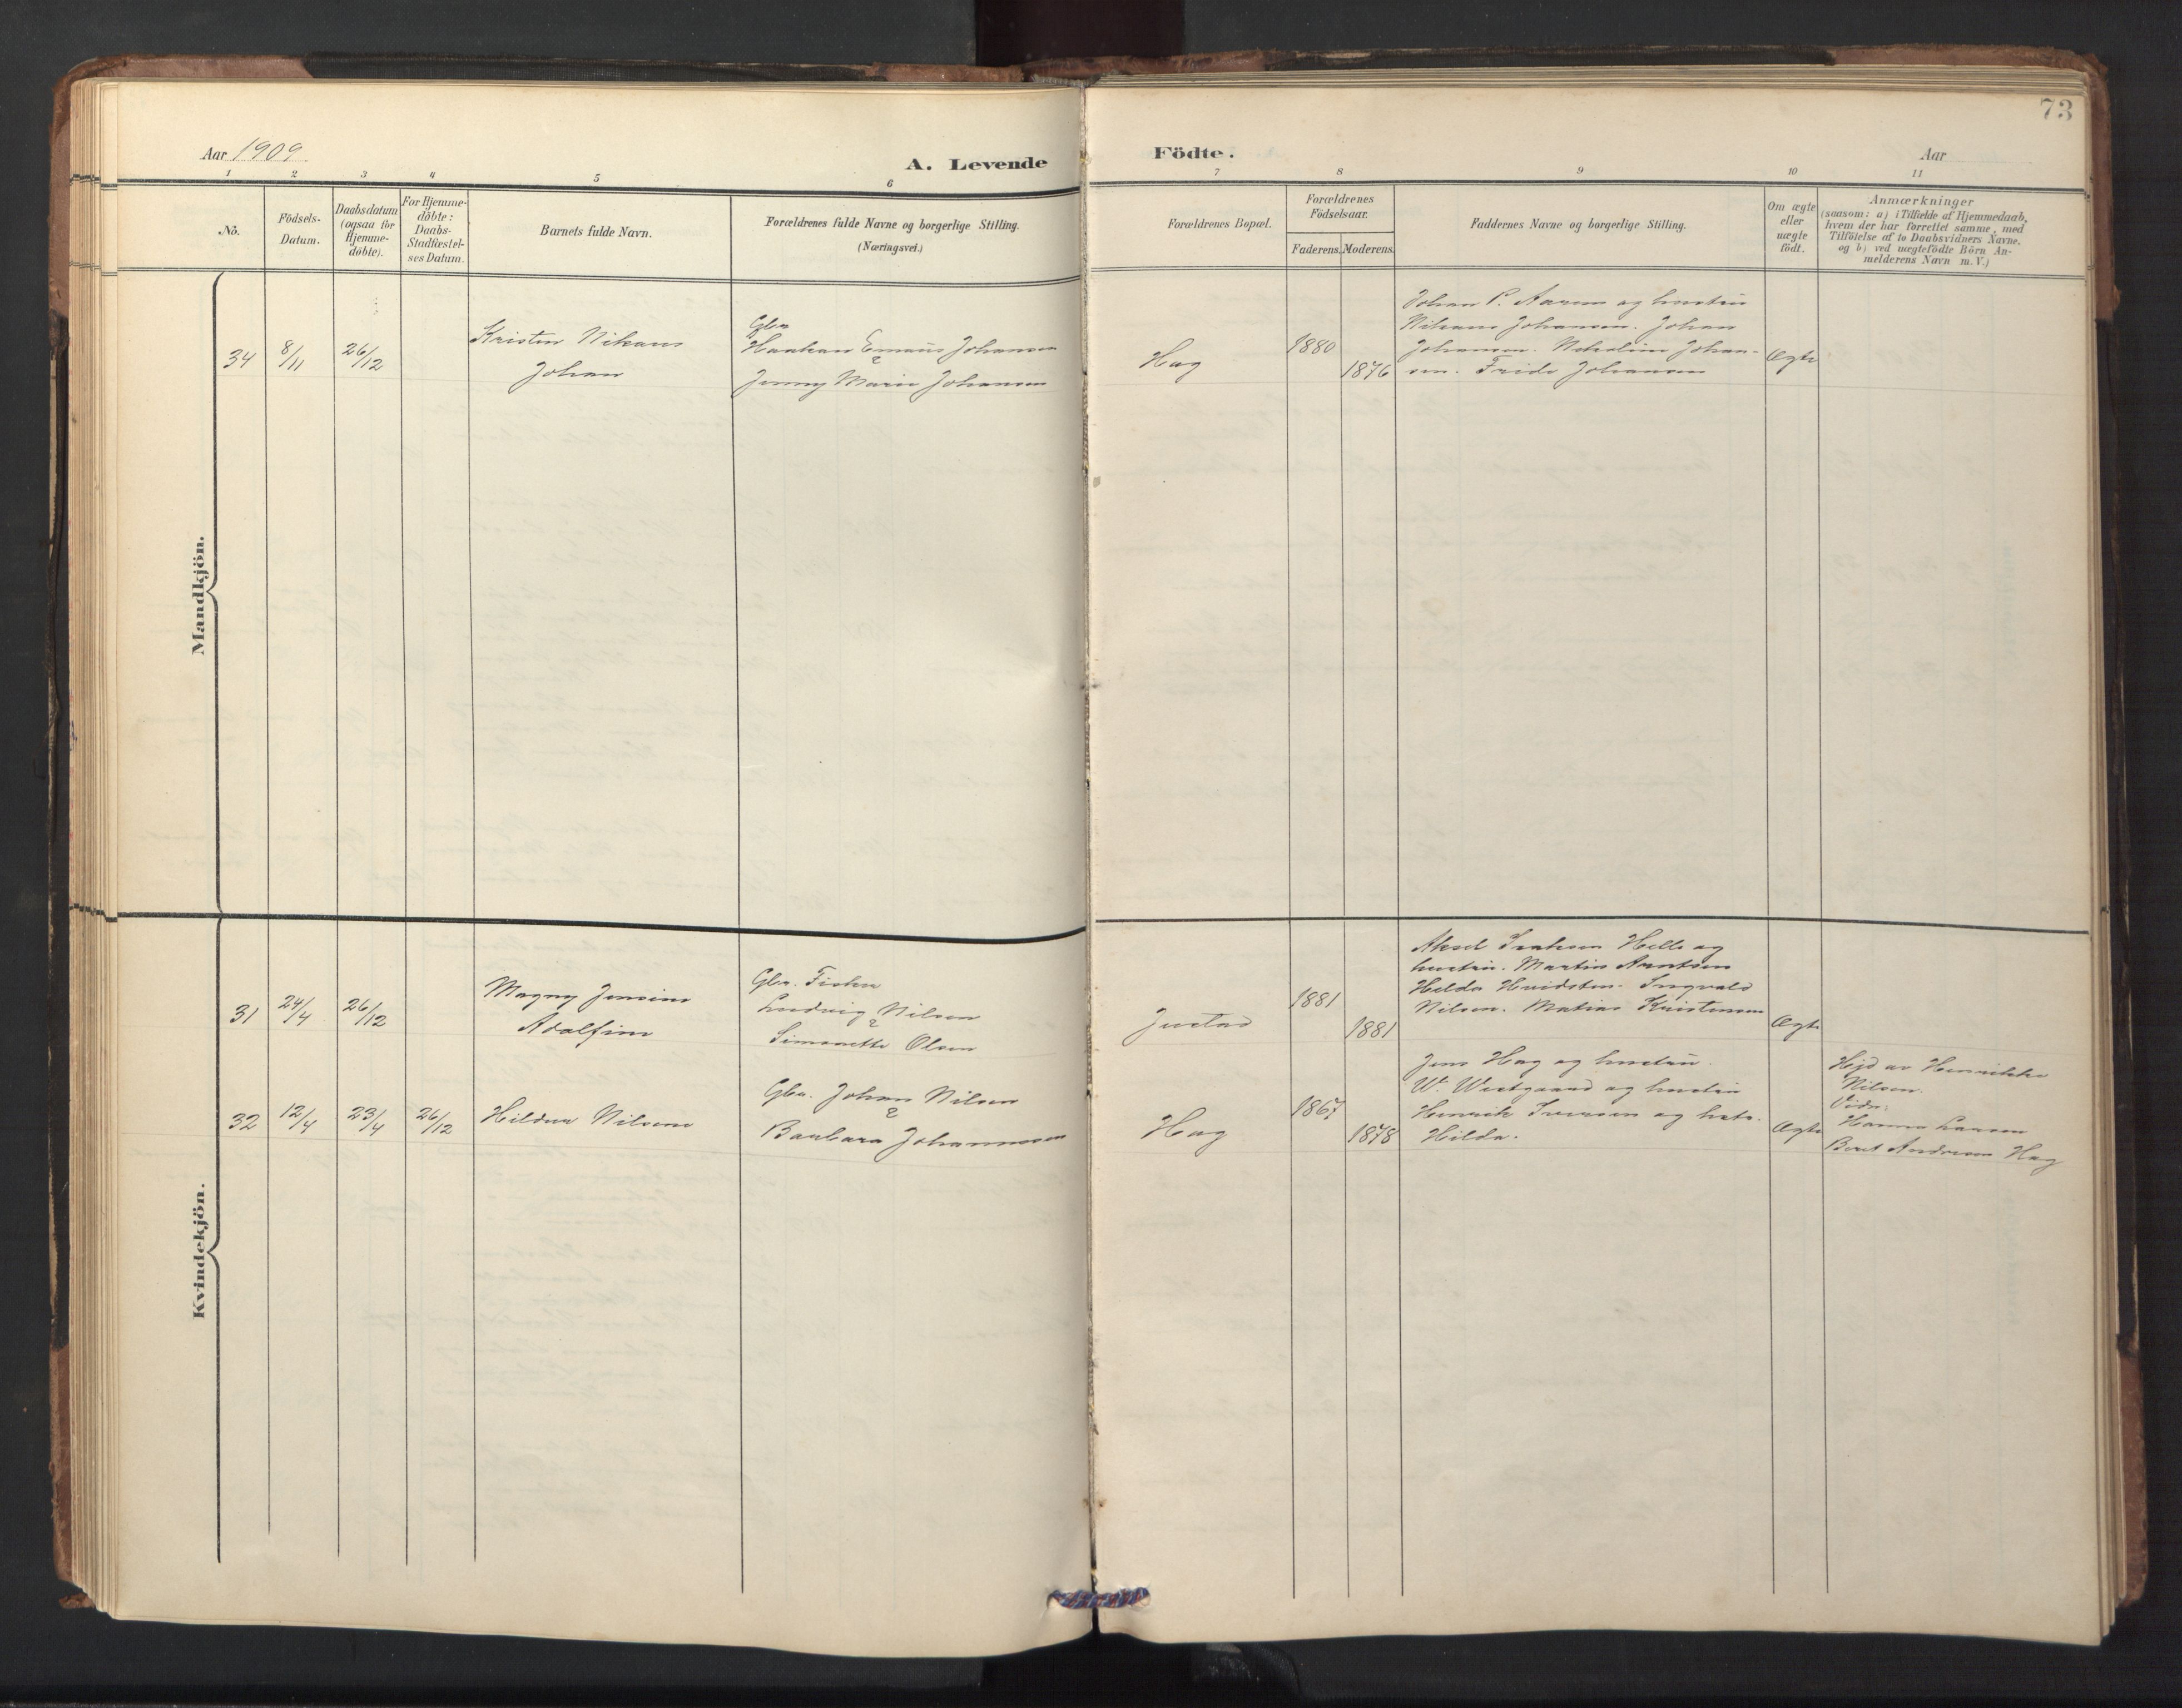 73
Aar 1909
A. Levende
Födte.
Aar
1 2 3 4 5 6 7 8 9 10 11
No.
Födsels-
Datum.
Daabsdatum
(ogsaa for
Hjemme-
döbte).
For Hjemme-
döbte:
Daabs-
Stadfæstel-
ses Datum.
Barnets fulde Navn.
Forældrenes fulde Navne og borgerlige Stilling.
(Næringsvei.)
Forældrenes Bopæl.
Forældrenes
Födselsaar.
Faderens. Moderens.
Faddernes Navne og borgerlige Stilling.
Om ægte
eller
uægte
födt.
Anmærkninger
(saasom: a) i Tilfælde af Hjemmedaab,
hvem der har forrettet samme, med
Tilföielse af to Daabsvidners Navne.
og b) ved uægtefödte Börn An-
melderens Navn m. V.)
Mandkjön.
34
8/11
26/12
Kristen
Johan
Gbr
Haakan Johansen
&
Jenny Marie Johansen
Hag
1880
1876
Johan P. og hustru
Johansen. Johan
Johansen. Johan-
sen. Johansen
Ægte
Kvindekjön.
31
24/4
26/12
Magny Jensine
Adolfine
Gbr. Fisker
Ludvig Nilsen
&
Simonette Olsen
Justad
1881
1881
Aksel og
hustru. Martin Arntsen
Hilda Ingvald
Nilsen. Matias Kristensen
Ægte
32
12/4
23/4
26/12
Hildur Nilsene
Gbr. Johan Nilsen
&
Barbara Johannessen
Hag
1867
1878
Jens Hag og hustru.
Wm Westgaard og hustru
Henrik Iversen og
Hilda.
Ægte
Hjd av Henrikke
Nilsen.
Vidn.
Hanna Larsen
Berit Andersen Hag